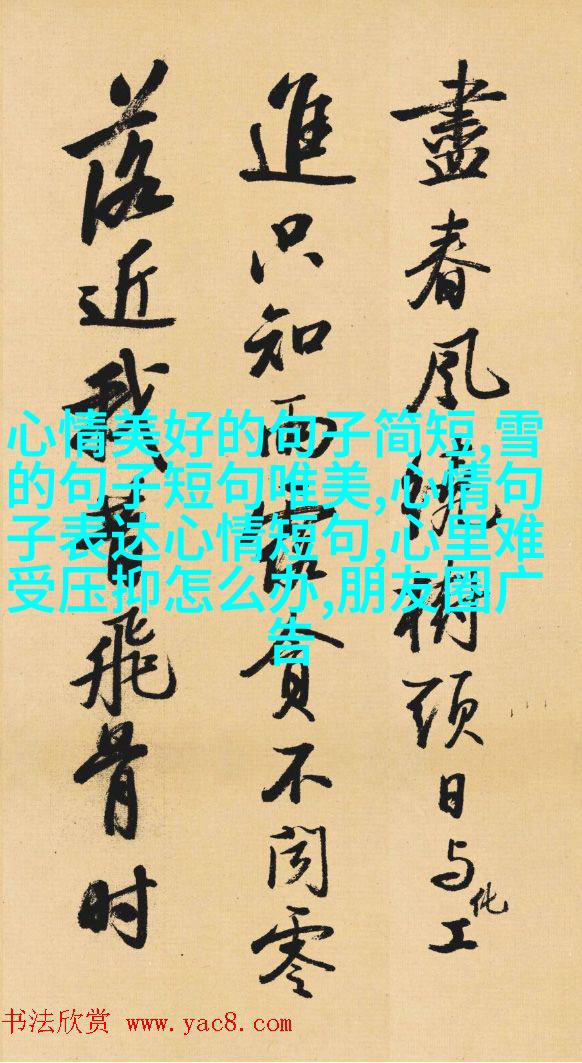 盡春風繞樹頭日与化工
進只知雨露貪不聞零
落近我昔飛骨时
心情美好的句子简短,雪
的句子短句唯美,心情句
子表达心情短句,心里难
受压抑怎么办,朋友圈广
告
书法欣赏 www.yac8.com